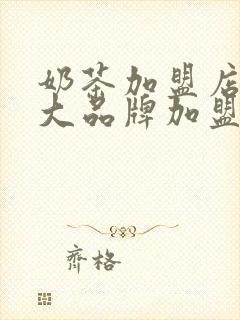 奶茶加盟店
大品牌加盟
齐格